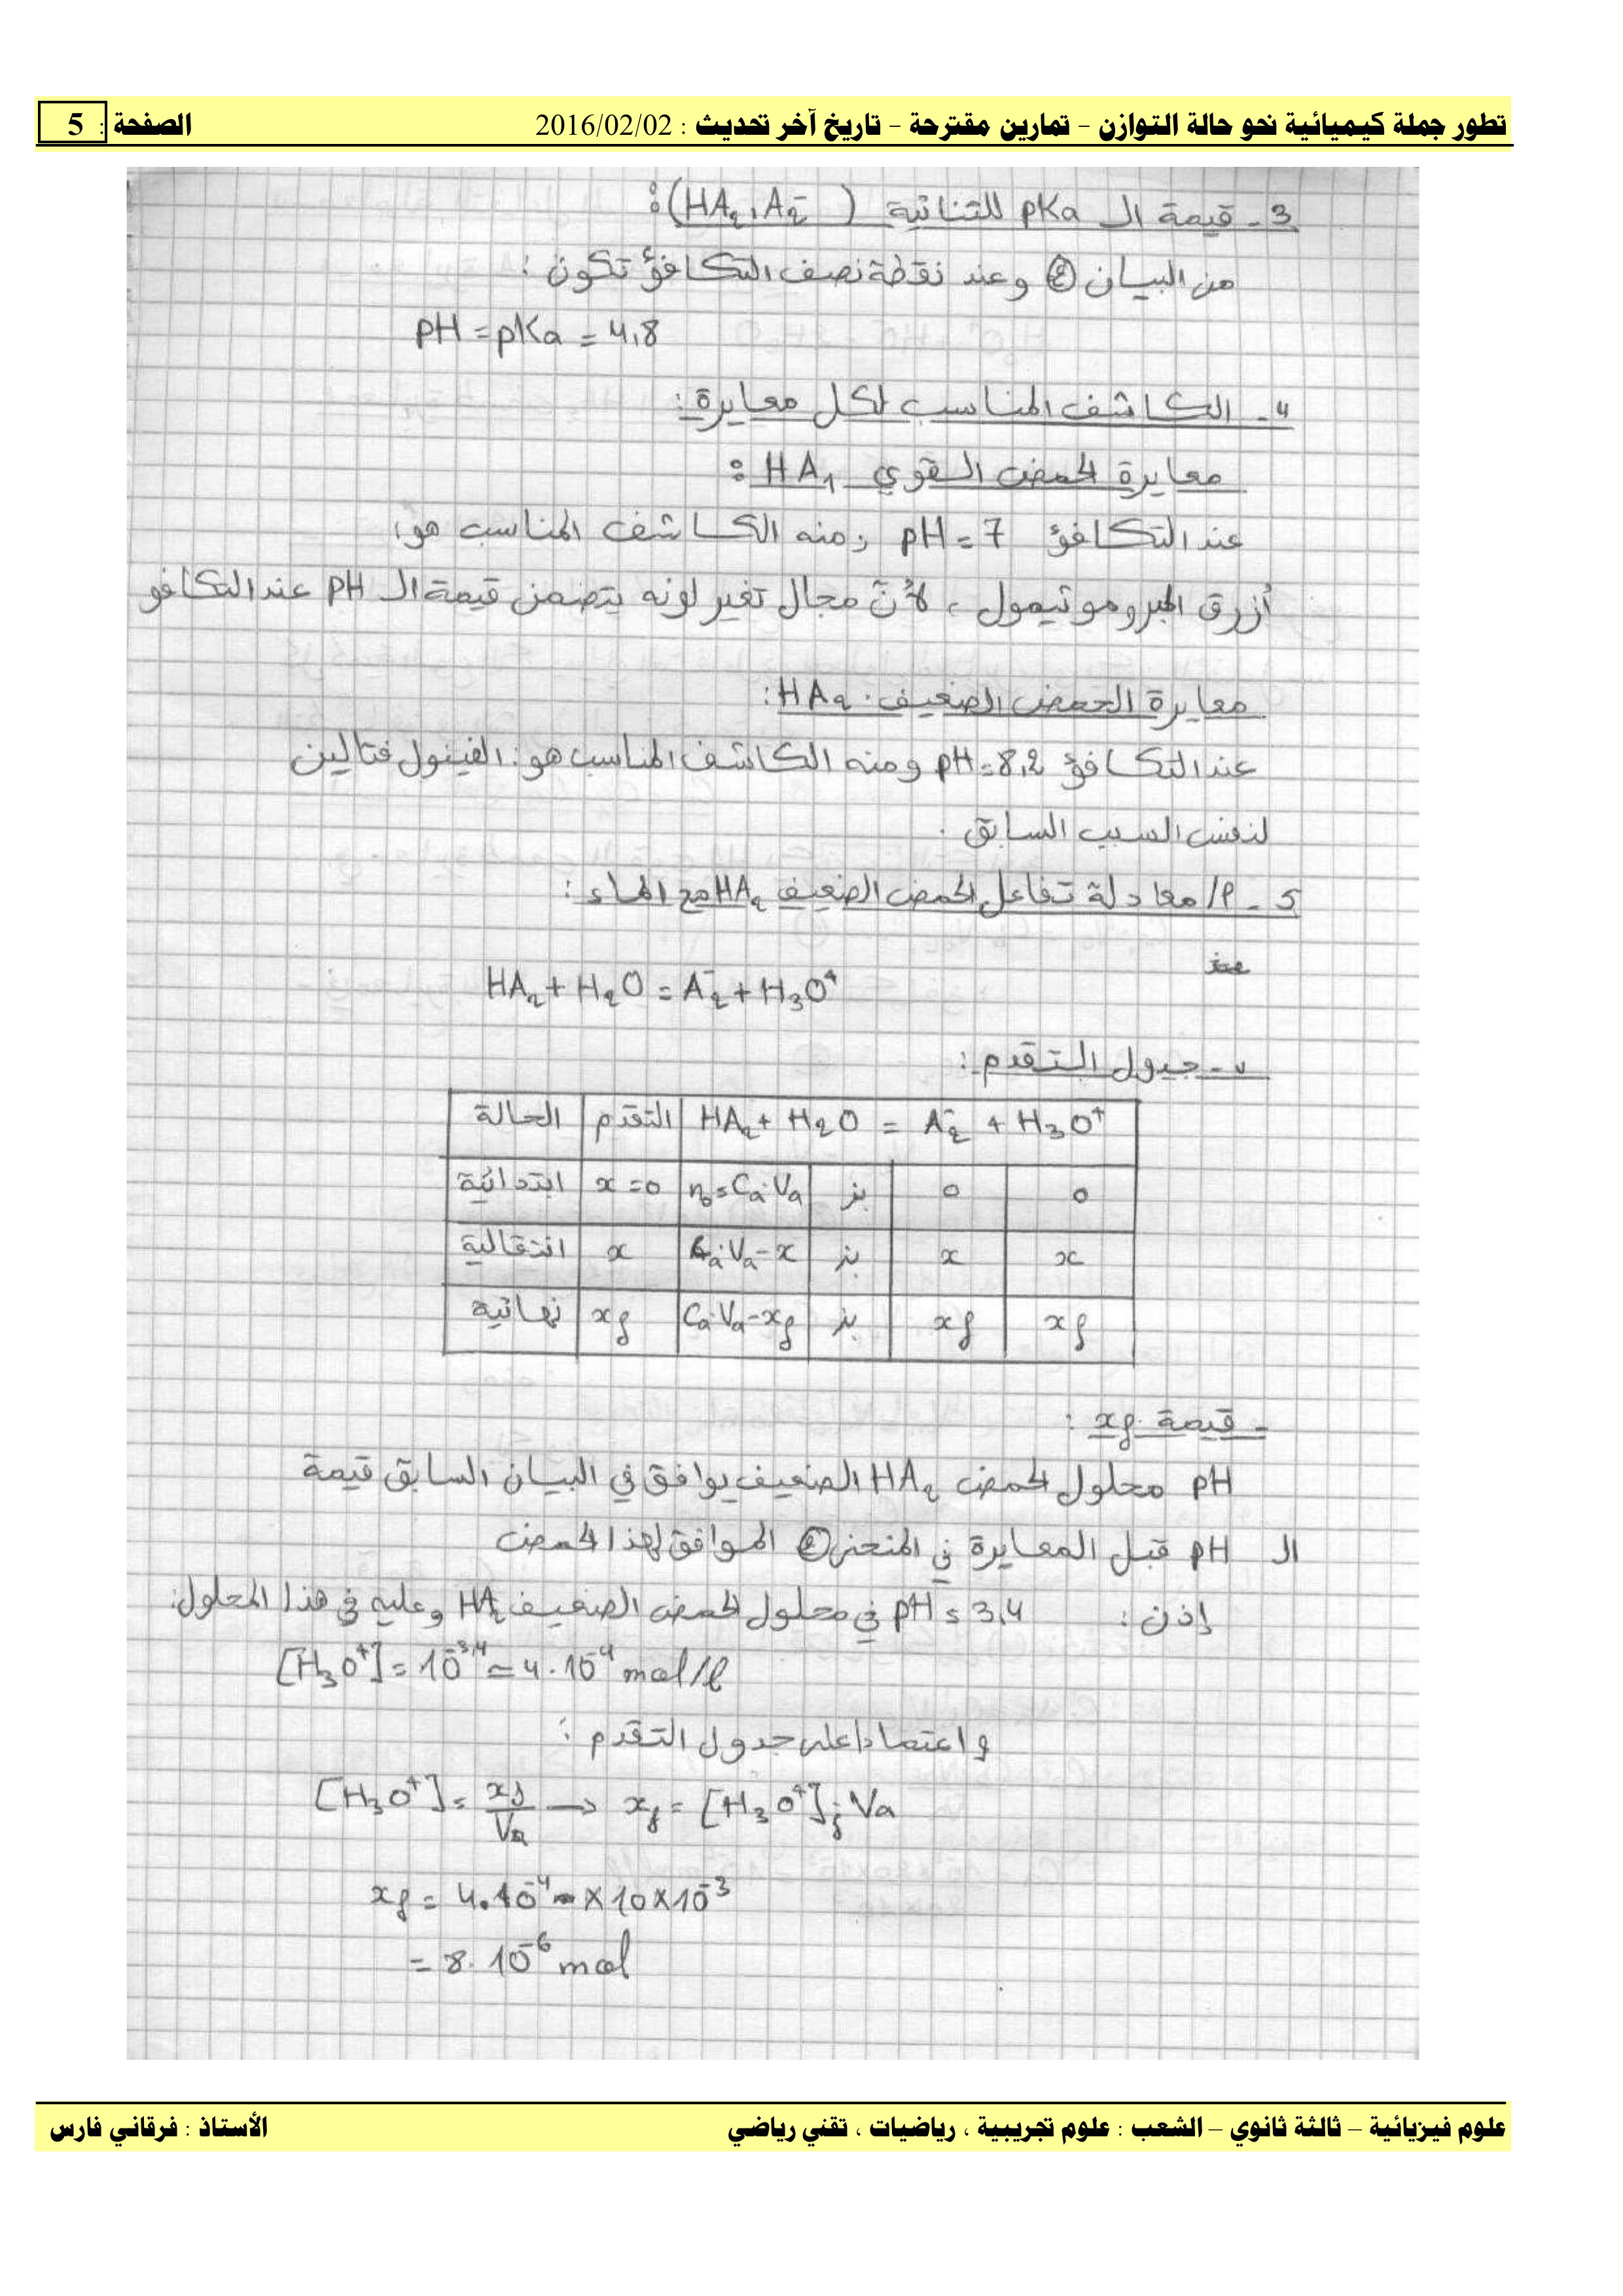 تطور جملة كيميائية نحو حالة التوازن – تمارين مقترحة – تاريخ آخر تحديث : 2016/02/02 الصفحة : 5
3 - قيمة الـ pKa للثنائية (HA₂, A₂⁻) :
من البيان ② وعند نقطة نصف التكافؤ تكون :
pH = pKa = 4,8
4 - الكاشف المناسب لكل معايرة :
معايرة الحمض القوي HA₁ :
عند التكافؤ pH = 7 ومنه الكاشف المناسب هو :
أزرق البروموتيمول ، لأن مجال تغير لونه يتضمن قيمة الـ pH عند التكافؤ
معايرة الحمض الضعيف HA₂ :
عند التكافؤ pH = 8,2 ومنه الكاشف المناسب هو : الفينول فتالين
لنفس السبب السابق .
5 - أ/ معادلة تفاعل الحمض الضعيف HA₂ مع الماء :
HA₂ + H₂O = A₂⁻ + H₃O⁺
ب - جدول التقدم :
الحالة | التقدم | HA₂ + H₂O = A₂⁻ + H₃O⁺
ابتدائية | x = 0 | n₀ = Ca.Va | بز | 0 | 0
انتقالية | x | Ca.Va - x | بز | x | x
نهائية | xf | Ca.Va - xf | بز | xf | xf
- قيمة xf :
pH محلول الحمض HA₂ الضعيف يوافق في البيان السابق قيمة
الـ pH قبل المعايرة في المنحنى ② الموافق لهذا الحمض
إذن : pH = 3,4 في محلول الحمض الضعيف HA₂ وعليه في هذا المحلول :
[H₃O⁺] = 10⁻³,⁴ = 4.10⁻⁴ mol/l
و اعتمادا على جدول التقدم :
[H₃O⁺] = xf/Va → xf = [H₃O⁺]f . Va
xf = 4.10⁻⁴ × 10 × 10⁻³
= 8.10⁻⁶ mol
علوم فيزيائية – ثالثة ثانوي – الشعب : علوم تجريبية ، رياضيات ، تقني رياضي الأستاذ : فرقاني فارس